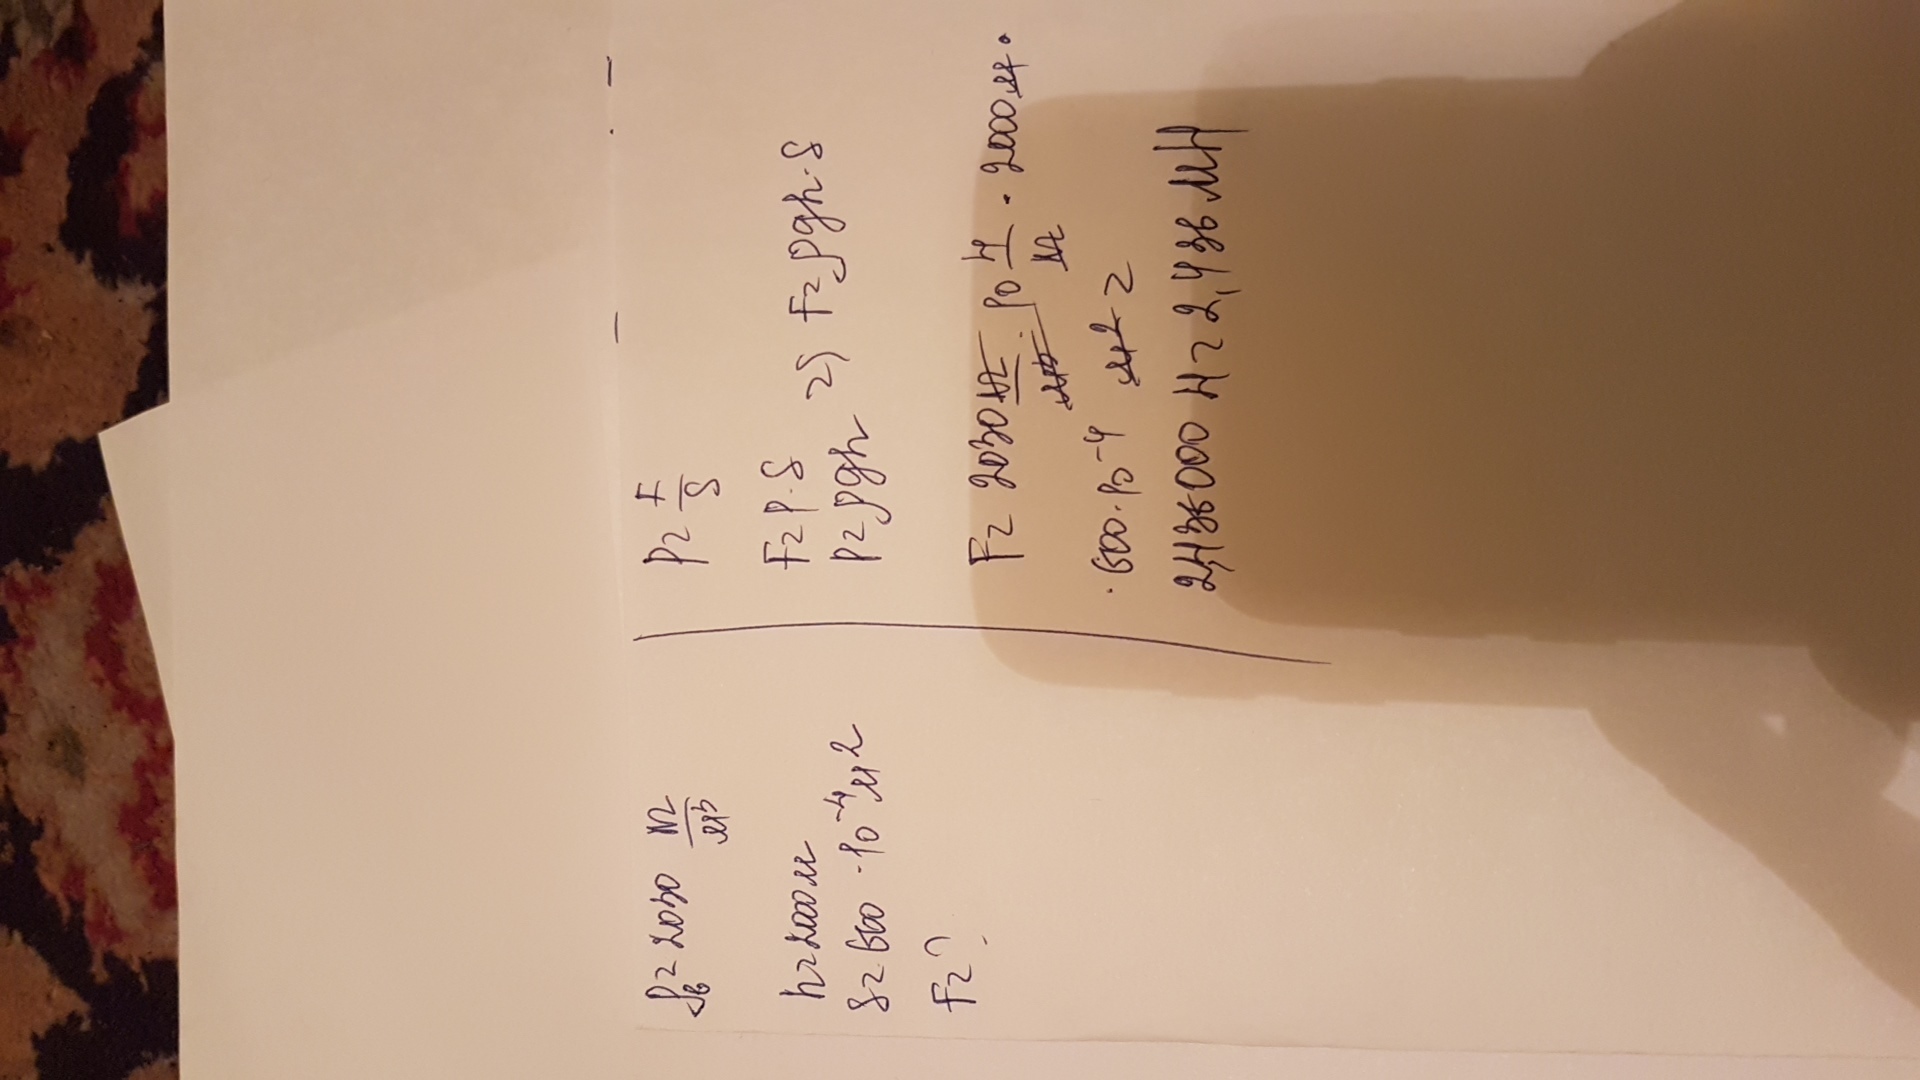 ρв = 2030 кг/м³
h = 2000 м
S = 600 · 10⁻⁴ м²
F = ?
p = F/S
F = p · S
p = ρgh ⇒ F = ρgh · S
F = 2030 кг/м³ · 10 Н/кг · 2000 м ·
· 600 · 10⁻⁴ м² =
2436000 Н = 2,436 МН